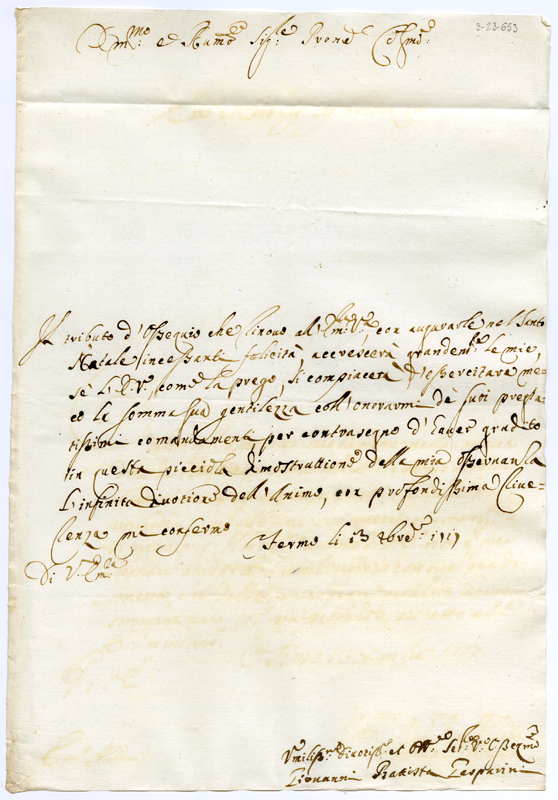 3-23-653
Em.mo e Rmo Sig.re Prone Col.mo
Il tributo d'Ossequio che rinovo all'Em.za V.ra, con augurarle nel Santo
Natale incessante felicità, accrescerà grandem.te le mie,
se l'E.V., come la prego, si compiacerà d'essercitare me-
co la somma sua gentilezza coll'onorarmi de suoi pregia-
tissimi comandamenti per contrasegno d'haver gradito
in questa picciola dimostrattione della mia osservanza
l'infinita divotione dell'Animo, e con profondissima rive-
renza mi confermo
Fermo li 13 Xbre 1717
Di V. Em.za
Vmiliss.mo Divotiss.mo et Obb.mo Se.re Vero Osseq.mo
Giovanni Battista Gasparini